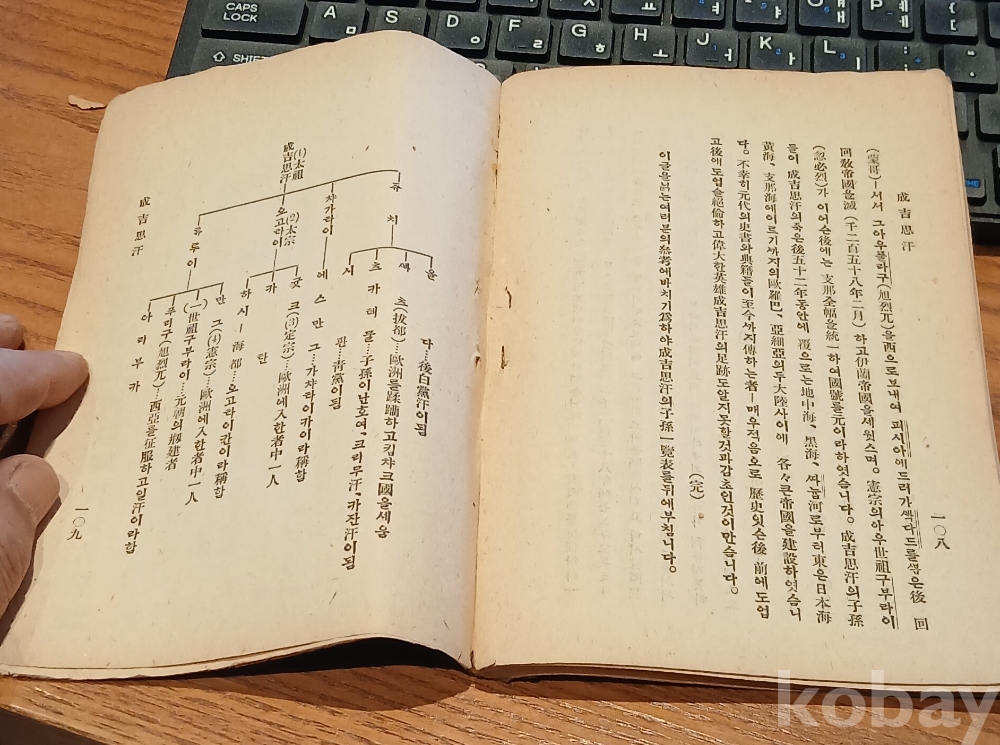 成吉思汗
一〇八
(蒙哥)—서서 그아우불라구(旭烈兀)을西으로보내여 페시아에드러가빽다드를쌓은後 回
回敎帝國을滅(千二百五十八年二月)하고伊蘭帝國을세웟스며。憲宗의아우世祖구부라이
(忽必烈)가 이어슨後에는 支那全幅을統一하여國號를元이라하엿습니다。成吉思汗의子孫
들이 成吉思汗의죽은後五十二年동안에 으로는地中海、黑海、따늅河로부터東은日本海
黃海、支那海에이르기까지의歐羅巴、亞細亞의두大陸사이에 各々큰帝國을建設하엿습니
다。不幸히元代의史書와典籍들이至今까지傳하는者—매우적음으로 歷史잇슨後 前에도업
고後에도업슬絕倫하고偉大한英雄成吉思汗의足跡도알지못할것과감초인것이만습니다。
(完)
이글을닑는여러분의參考에바치기爲하야成吉思汗의子孫一覽表를뒤에부침니다。
(1)太祖
成吉思汗
쥬 치
울
쌕
다…後白黨汗이됨
츠
츠(拔都)…歐洲를蹂躪하고킵챠크國을세움
카 테 물…子孫이난호여、크리무汗、카잔汗이됨
시
판…靑黨이됨
챠가라이—에 스 만 그…가챠라이카이라稱함
(2)太宗
오고라이
굿 크(3)定宗)…歐洲에入한者中一人
카
탄
하시—海都…오고라이칸이라稱함
류 루 이
만 그(4)憲宗)…歐洲에入한者中一人
(一世祖구부라이…元朝의刱建者
푸리구(旭烈兀)…西亞를征服하고일汗이라함
아 리 부 카
成吉思汗
一〇九
CAPS LOCK
SHIFT
A
S
D
F
G
H
J
K
L
kobay